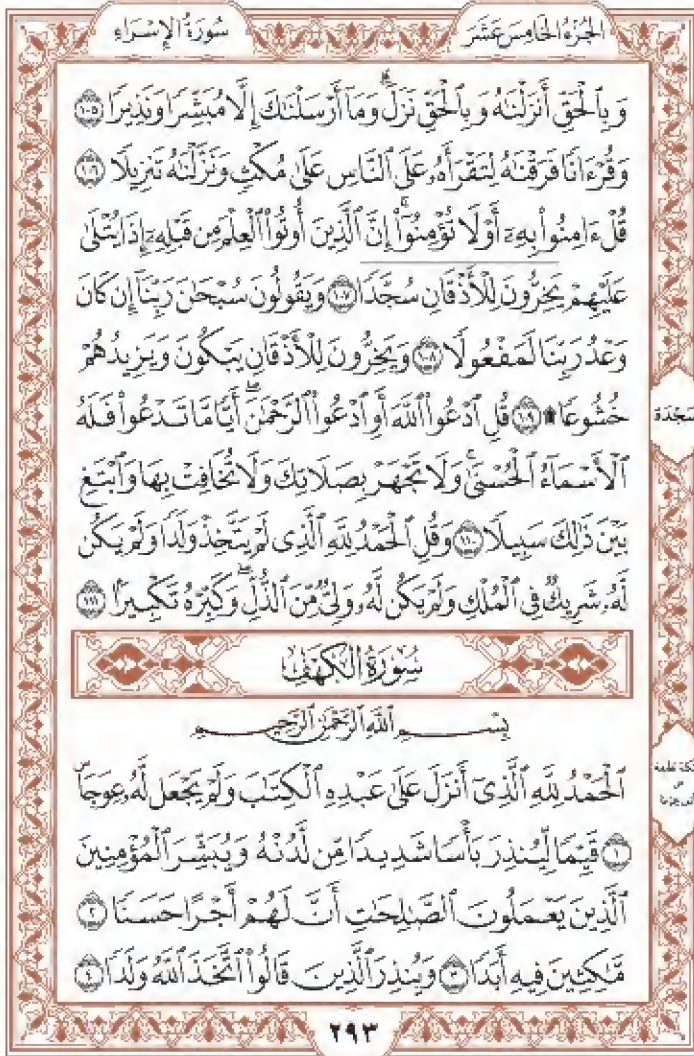 الجُزْءُ الخَامِسَ عَشَرَ
سُورَةُ الإِسْرَاءِ
وَبِٱلْحَقِّ أَنزَلْنَٰهُ وَبِٱلْحَقِّ نَزَلَۗ وَمَآ أَرْسَلْنَٰكَ إِلَّا مُبَشِّرًا وَنَذِيرًا ١٠٥
وَقُرْءَانًا فَرَقْنَٰهُ لِتَقْرَأَهُۥ عَلَى ٱلنَّاسِ عَلَىٰ مُكْثٍ وَنَزَّلْنَٰهُ تَنزِيلًا ١٠٦
قُلْ ءَامِنُوا۟ بِهِۦٓ أَوْ لَا تُؤْمِنُوٓا۟ۚ إِنَّ ٱلَّذِينَ أُوتُوا۟ ٱلْعِلْمَ مِن قَبْلِهِۦٓ إِذَا يُتْلَىٰ
عَلَيْهِمْ يَخِرُّونَ لِلْأَذْقَانِ سُجَّدًا ١٠٧ وَيَقُولُونَ سُبْحَٰنَ رَبِّنَآ إِن كَانَ
وَعْدُ رَبِّنَا لَمَفْعُولًا ١٠٨ وَيَخِرُّونَ لِلْأَذْقَانِ يَبْكُونَ وَيَزِيدُهُمْ
خُشُوعًا ۩ ١٠٩ قُلِ ٱدْعُوا۟ ٱللَّهَ أَوِ ٱدْعُوا۟ ٱلرَّحْمَٰنَۖ أَيًّا مَّا تَدْعُوا۟ فَلَهُ
ٱلْأَسْمَآءُ ٱلْحُسْنَىٰۚ وَلَا تَجْهَرْ بِصَلَاتِكَ وَلَا تُخَافِتْ بِهَا وَٱبْتَغِ
بَيْنَ ذَٰلِكَ سَبِيلًا ١١٠ وَقُلِ ٱلْحَمْدُ لِلَّهِ ٱلَّذِى لَمْ يَتَّخِذْ وَلَدًا وَلَمْ يَكُن
لَّهُۥ شَرِيكٌ فِى ٱلْمُلْكِ وَلَمْ يَكُن لَّهُۥ وَلِىٌّ مِّنَ ٱلذُّلِّۖ وَكَبِّرْهُ تَكْبِيرًۢا ١١١
سُورَةُ الكَهْفِ
بِسْمِ ٱللَّهِ ٱلرَّحْمَٰنِ ٱلرَّحِيمِ
ٱلْحَمْدُ لِلَّهِ ٱلَّذِىٓ أَنزَلَ عَلَىٰ عَبْدِهِ ٱلْكِتَٰبَ وَلَمْ يَجْعَل لَّهُۥ عِوَجَاۜ
١ قَيِّمًا لِّيُنذِرَ بَأْسًا شَدِيدًا مِّن لَّدُنْهُ وَيُبَشِّرَ ٱلْمُؤْمِنِينَ
ٱلَّذِينَ يَعْمَلُونَ ٱلصَّٰلِحَٰتِ أَنَّ لَهُمْ أَجْرًا حَسَنًا ٢
مَّٰكِثِينَ فِيهِ أَبَدًا ٣ وَيُنذِرَ ٱلَّذِينَ قَالُوا۟ ٱتَّخَذَ ٱللَّهُ وَلَدًا ٤
سَجْدَة
٢٩٣